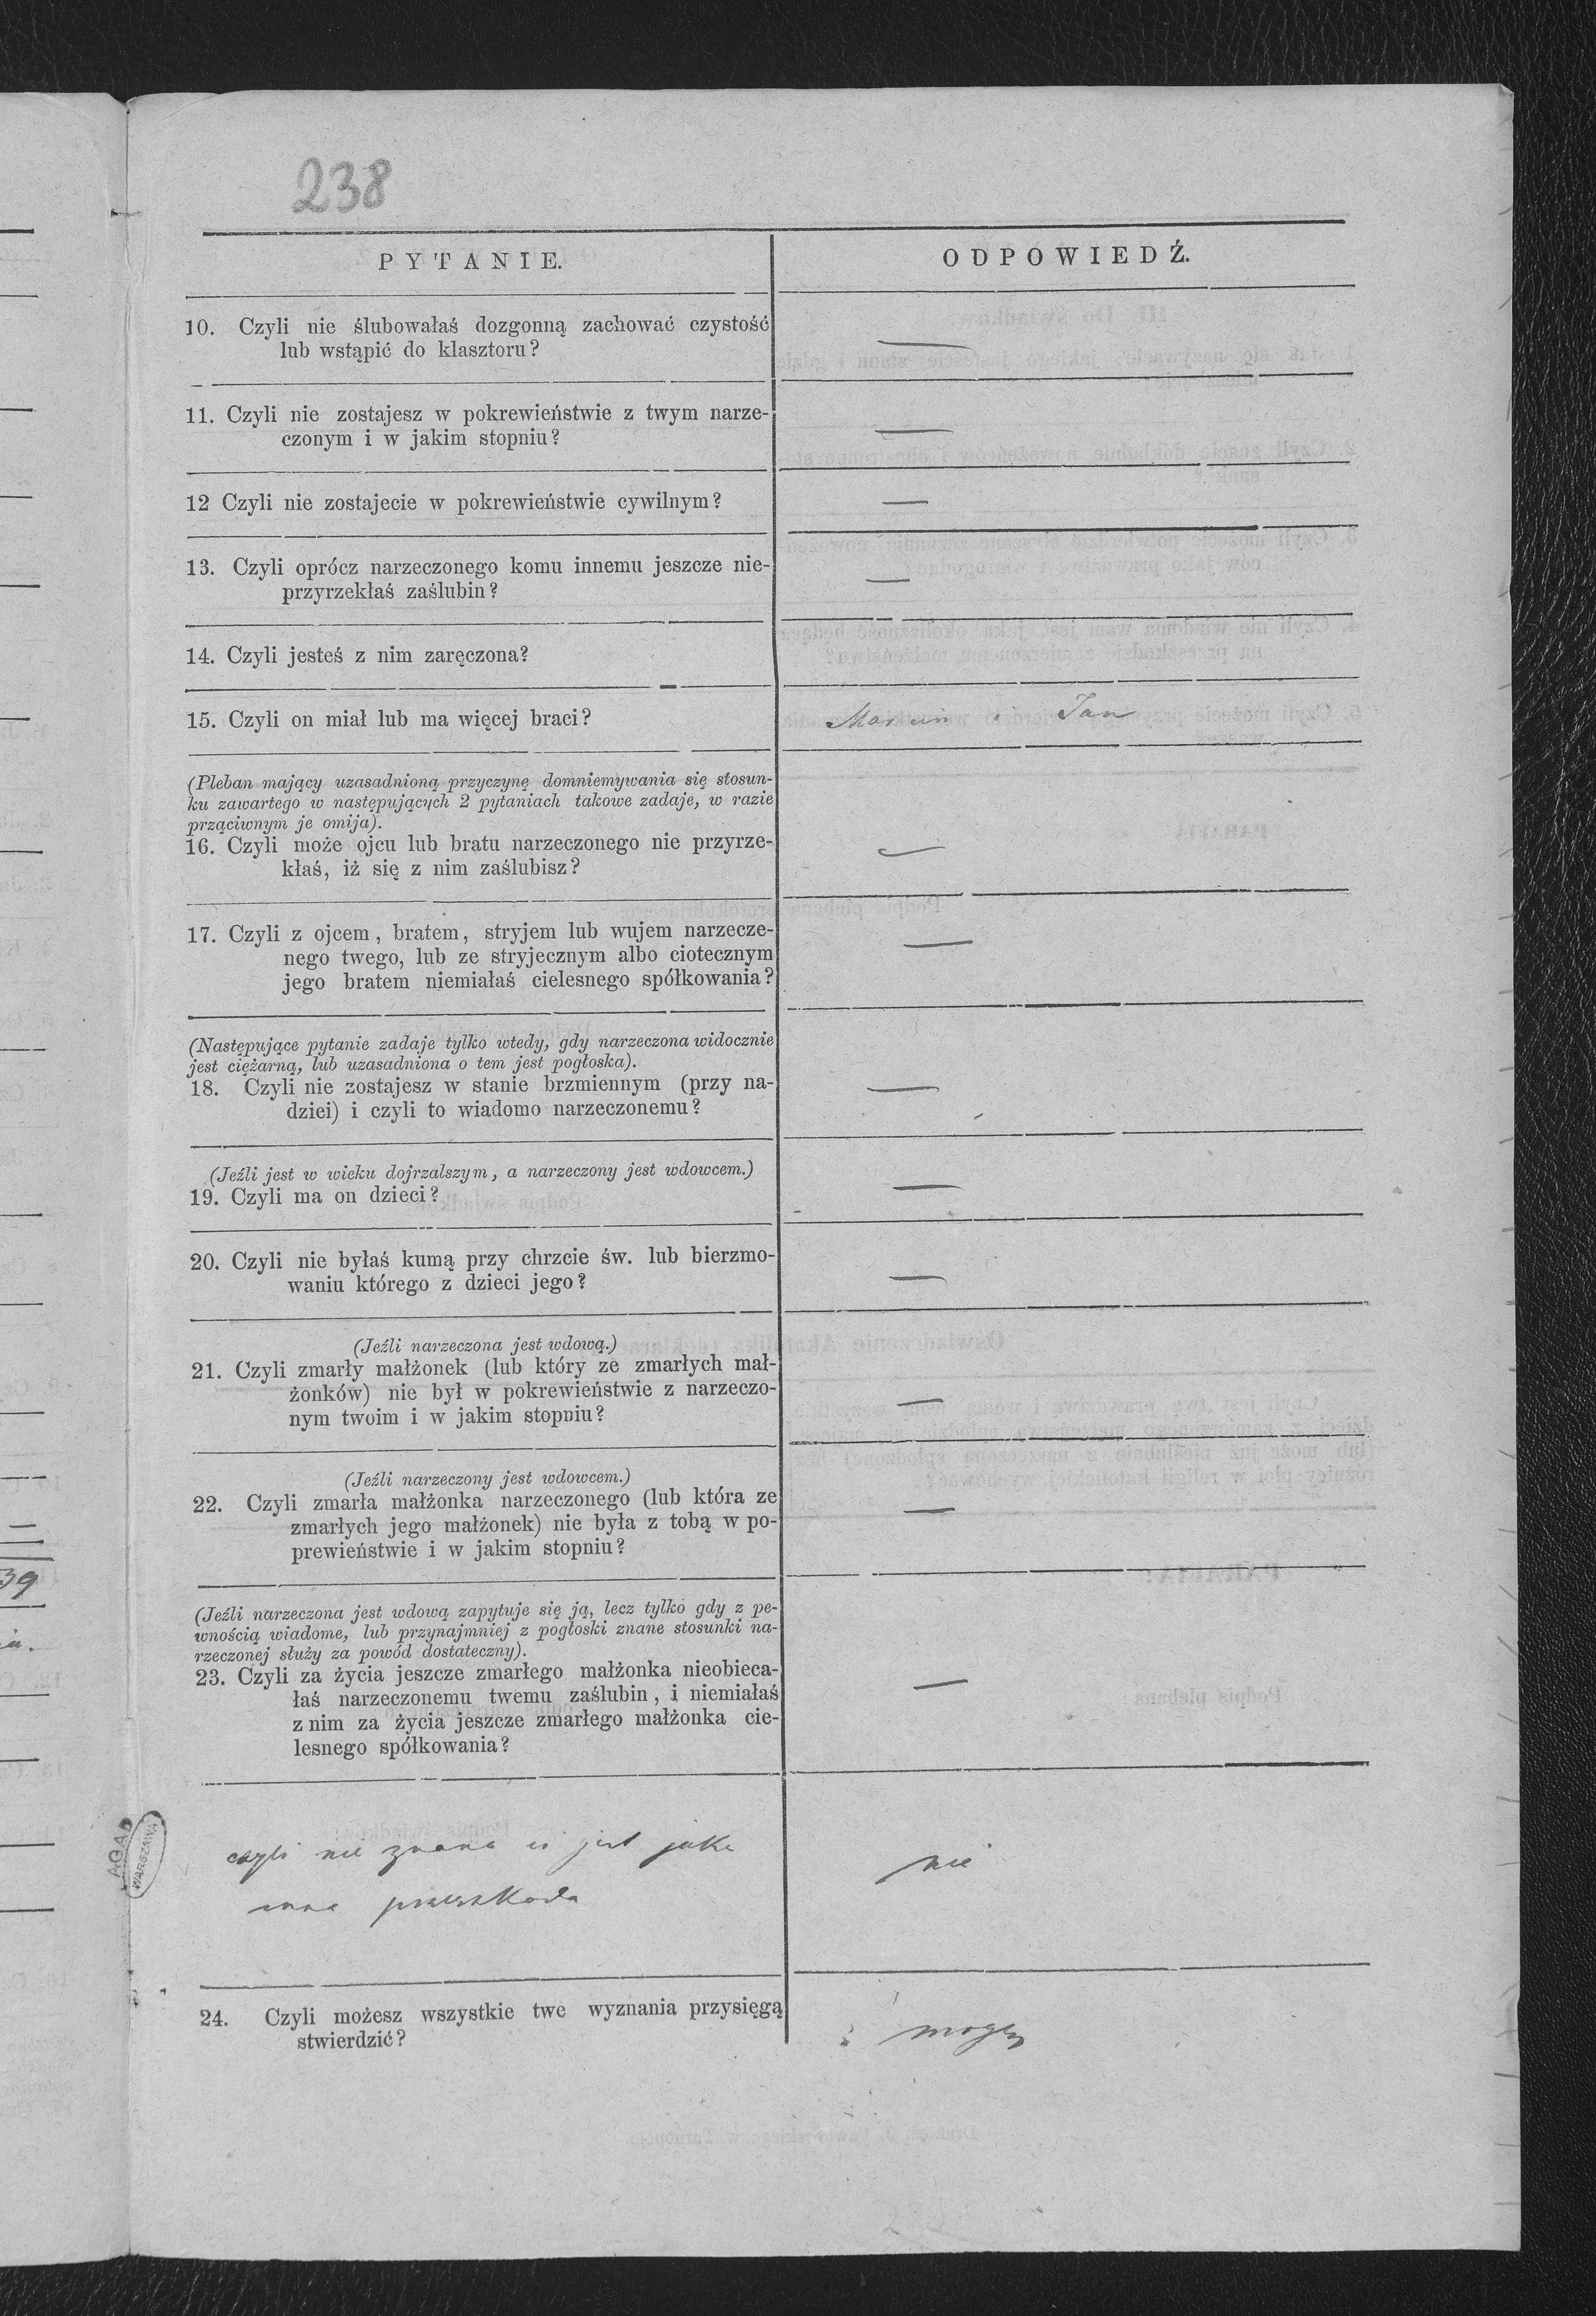 238
PYTANIE.
ODPOWIEDŹ.
10. Czyli nie ślubowałaś dozgonną zachować czystość
lub wstąpić do klasztoru?
—
11. Czyli nie zostajesz w pokrewieństwie z twym narze-
czonym i w jakim stopniu?
—
12 Czyli nie zostajecie w pokrewieństwie cywilnym?
—
13. Czyli oprócz narzeczonego komu innemu jeszcze nie-
przyrzekłaś zaślubin?
—
14. Czyli jesteś z nim zaręczona?
15. Czyli on miał lub ma więcej braci?
Marcin i Jan
(Pleban mający uzasadnioną przyczynę domniemywania się stosun-
ku zawartego w następujących 2 pytaniach takowe zadaje, w razie
prząciwnym je omija).
16. Czyli może ojcu lub bratu narzeczonego nie przyrze-
kłaś, iż się z nim zaślubisz?
—
17. Czyli z ojcem, bratem, stryjem lub wujem narzecze-
nego twego, lub ze stryjecznym albo ciotecznym
jego bratem niemiałaś cielesnego spółkowania?
—
(Następujące pytanie zadaje tylko wtedy, gdy narzeczona widocznie
jest ciężarną, lub uzasadniona o tem jest pogłoska).
18. Czyli nie zostajesz w stanie brzmiennym (przy na-
dziei) i czyli to wiadomo narzeczonemu?
—
(Jeźli jest w wieku dojrzalszym, a narzeczony jest wdowcem.)
19. Czyli ma on dzieci?
—
20. Czyli nie byłaś kumą przy chrzcie św. lub bierzmo-
waniu którego z dzieci jego?
—
(Jeźli narzeczona jest wdową.)
21. Czyli zmarły małżonek (lub który ze zmarłych mał-
żonków) nie był w pokrewieństwie z narzeczo-
nym twoim i w jakim stopniu?
—
(Jeźli narzeczony jest wdowcem.)
22. Czyli zmarła małżonka narzeczonego (lub która ze
zmarłych jego małżonek) nie była z tobą w po-
prewieństwie i w jakim stopniu?
—
(Jeźli narzeczona jest wdową zapytuje się ją, lecz tylko gdy z pe-
wnością wiadome, lub przynajmniej z pogłoski znane stosunki na-
rzeczonej służy za powód dostateczny).
23. Czyli za życia jeszcze zmarłego małżonka nieobieca-
łaś narzeczonemu twemu zaślubin, i niemiałaś
z nim za życia jeszcze zmarłego małżonka cie-
lesnego spółkowania?
—
czyli nie znana ci jest jaka
inna przeszkoda
nie
24. Czyli możesz wszystkie twe wyznania przysięgą
stwierdzić?
mogę
39
AGAD
WARSZAWA